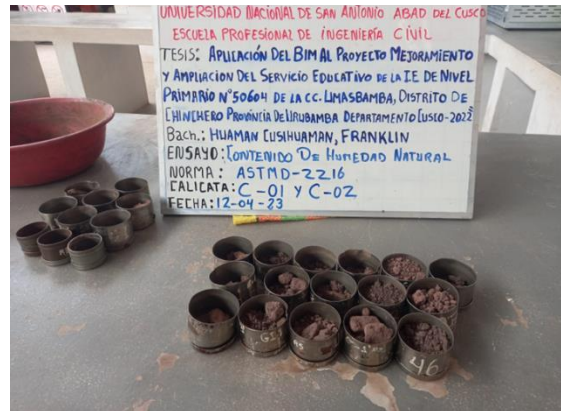 UNIVERSIDAD NACIONAL DE SAN ANTONIO ABAD DEL CUSCO
ESCUELA PROFESIONAL DE INGENIERÍA CIVIL
TESIS: APLICACIÓN DEL BIM AL PROYECTO MEJORAMIENTO
Y AMPLIACION DEL SERVICIO EDUCATIVO DE LA I.E DE NIVEL
PRIMARIO N°50604 DE LA CC. UMASBAMBA, DISTRITO DE
CHINCHERO PROVINCIA DE URUBAMBA DEPARTAMENTO CUSCO-2022
Bach.: HUAMAN CUSIHUAMAN, FRANKLIN
ENSAYO: CONTENIDO DE HUMEDAD NATURAL
NORMA: ASTMD-2216
CALICATA: C-01 Y C-02
FECHA: 12-04-23
46